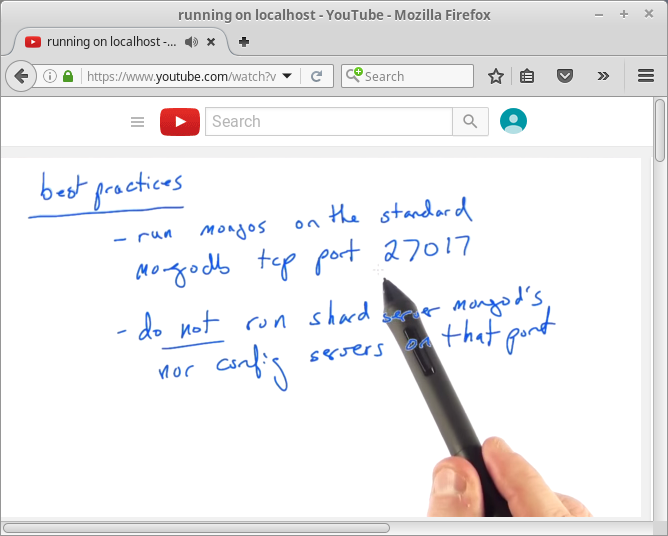 running on localhost - YouTube - Mozilla Firefox
running on localhost -...
https://www.youtube.com/watch?v
Search
Search
best practices
- run mongos on the standard
mongodb tcp port 27017
- do not run shard server mongod's
nor config servers on that port